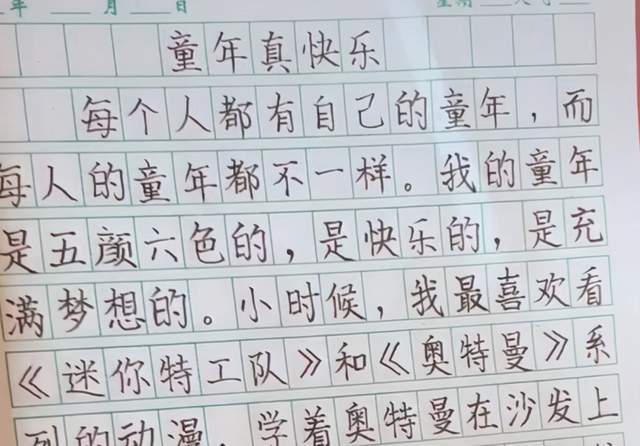 年 月 日
童年真快乐
每个人都有自己的童年，而
每人的童年都不一样。我的童年
是五颜六色的，是快乐的，是充
满梦想的。小时候，我最喜欢看
《迷你特工队》和《奥特曼》系
列的动漫，学着奥特曼在沙发上